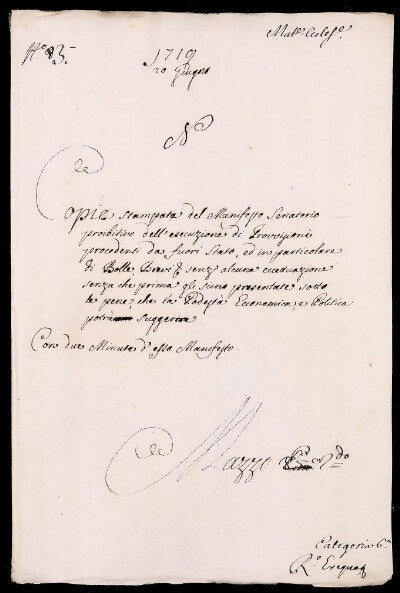 Mat.e Eccles.e
N.o 83.
1719
20 Giugno
N
Copie stampate del Manifesto Senatorio
proibitivo dell'esecuzione di Provvisioni
procedenti da fuori Stato, ed in particolare
di Bolle, Brevi senz'alcuna eccettuazione
senza che prima gli sieno presentate sotto
le pene, che la Podestà Economica, e Politica
potrà suggerire
Con due Minute d'esso Manifesto
Mazzo 2.do
Categoria 6.a
R.o Exequat